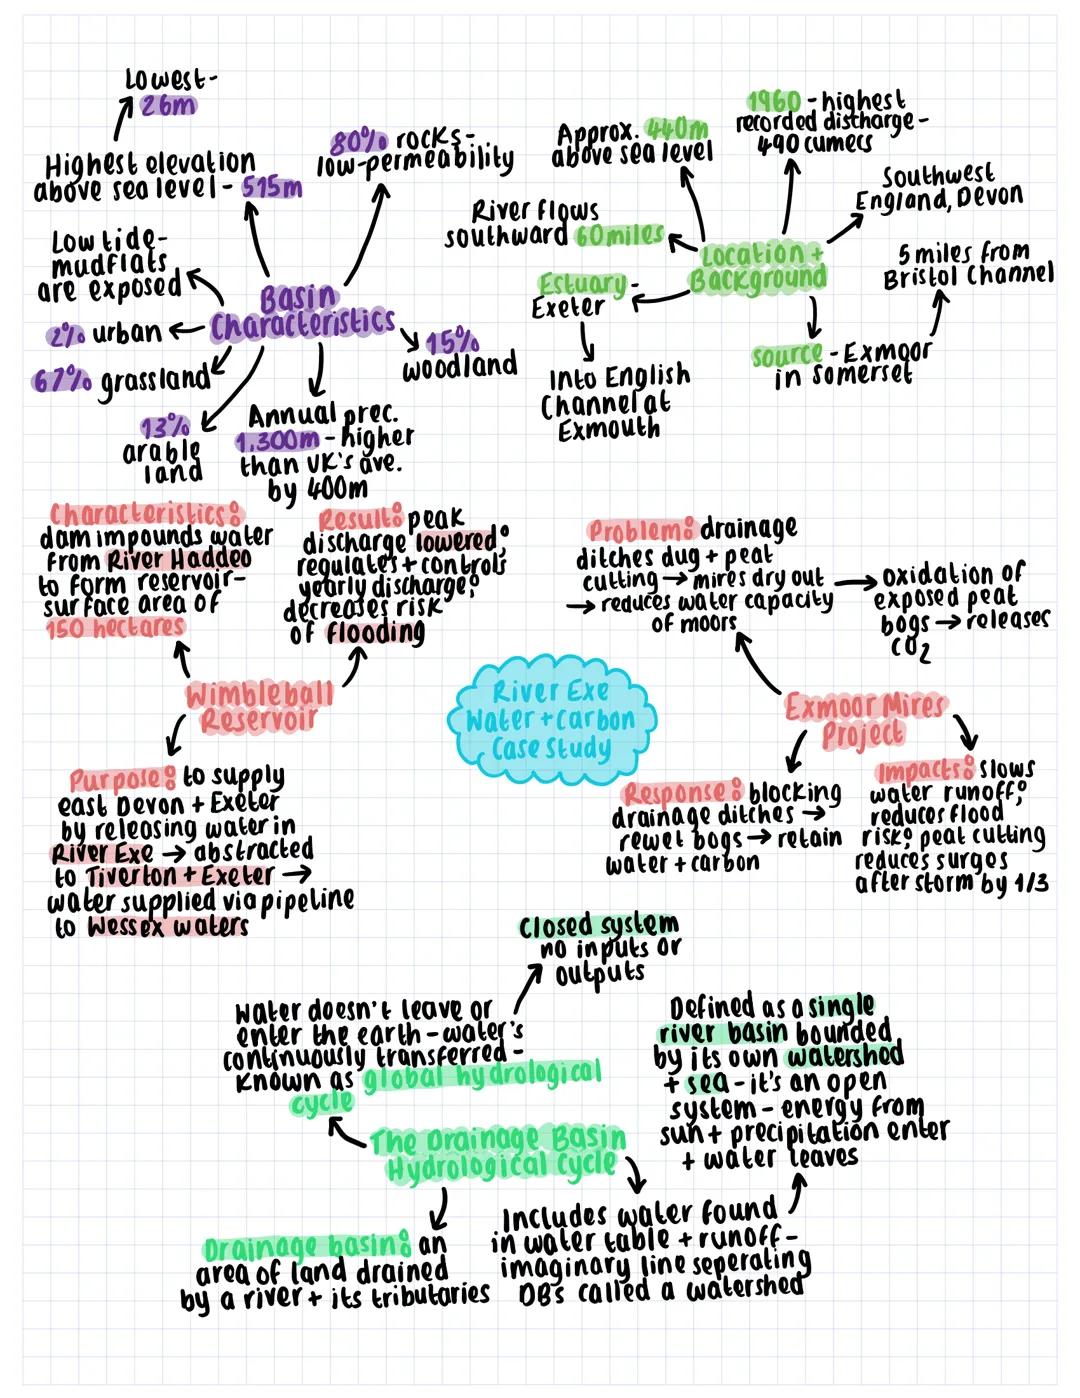 Lowest-
26m
Highest elevation
above sea level - 515m
80% rocks-
low-permeability
Low tide-
mudflats
are exposed
Basin
Characteristics
2% urban
67% grassland
13%
arable
land
Annual prec.
1,300m - higher
than UK's ave.
by 400m
15%
woodland
Approx. 440m
above sea level
1960 - highest
recorded discharge -
490 cumecs
Southwest
England, Devon
River flows
southward 60miles
Location +
Background
5 miles from
Bristol Channel
Estuary -
Exeter
Into English
Channel at
Exmouth
source - Exmoor
in Somerset
Characteristics:
dam impounds water
from River Haddeo
to form reservoir-
surface area of
150 hectares
Result: peak
discharge lowered;
regulates + controls
yearly discharge;
decreases risk
of flooding
Wimbleball
Reservoir
Purpose: to supply
east Devon + Exeter
by releasing water in
River Exe → abstracted
to Tiverton + Exeter →
water supplied via pipeline
to Wessex waters
River Exe
Water + Carbon
Case Study
Problem: drainage
ditches dug + peat
cutting → mires dry out
→ reduces water capacity
of moors
oxidation of
exposed peat
bogs → releases
CO2
Exmoor Mires
Project
Response: blocking
drainage ditches →
rewet bogs → retain
water + carbon
Impacts: slows
water runoff;
reduces flood
risk; peat cutting
reduces surges
after storm by 1/3
Closed system
no inputs or
outputs
Water doesn't leave or
enter the earth - water's
continuously transferred -
known as global hydrological
cycle
The Drainage Basin
Hydrological Cycle
Drainage basin: an
area of land drained
by a river + its tributaries
Includes water found
in water table + runoff -
imaginary line seperating
DBs called a watershed
Defined as a single
river basin bounded
by its own watershed
+ sea - it's an open
system - energy from
sun + precipitation enter
+ water leaves